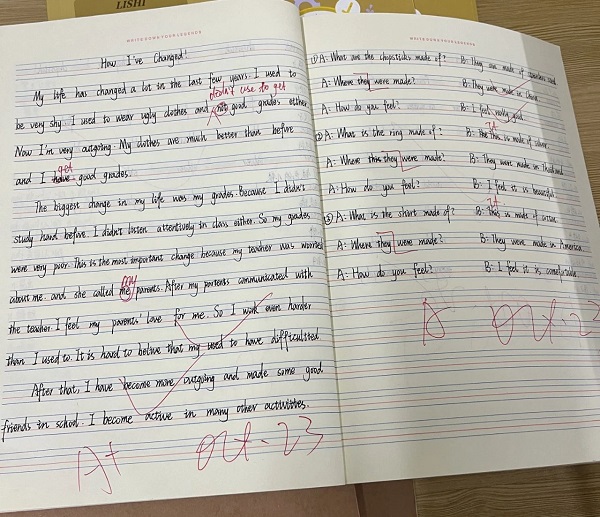 LISHI
WRITE DOWN YOUR LEGENDS
How I've Changed!
My life has changed a lot in the last few years. I used to
didn't use to get
be very shy. I used to wear ugly clothes and no good grades either
Now I'm very outgoing. My clothes are much better than before
get
and I have good grades.
The biggest change in my life was my grades. Because I didn't
study hard before. I didn't listen attentively in class either. So my grades
were very poor. This is the most important change because my teacher was worried
my
about me. and she called me parents. After my parents communicated with
the teacher. I feel my parents' love for me. So I work even harder
than I used to. It is hard to belive that my used to have difficulited
After that, I have become more outgoing and made some good
friends in school. I become active in many other activities.
A+ Oct. 23
WRITE DOWN YOUR LEGENDS
① A: What are the chopsticks made of? B: They are made of steel
A: Where they were made? B: They were made in China
A: How do you feel? B: I feel very good
It
② A: What is the ring made of? B: This is made of silver.
A: Where they were made? B: They were made in Thailand
A: How do you feel? B: I feel it is beautiful.
It
③ A: What is the short made of? B: This is made of cotton.
A: Where they were made? B: They were made in America
A: How do you feel? B: I feel it is comfortable
A Oct. 23